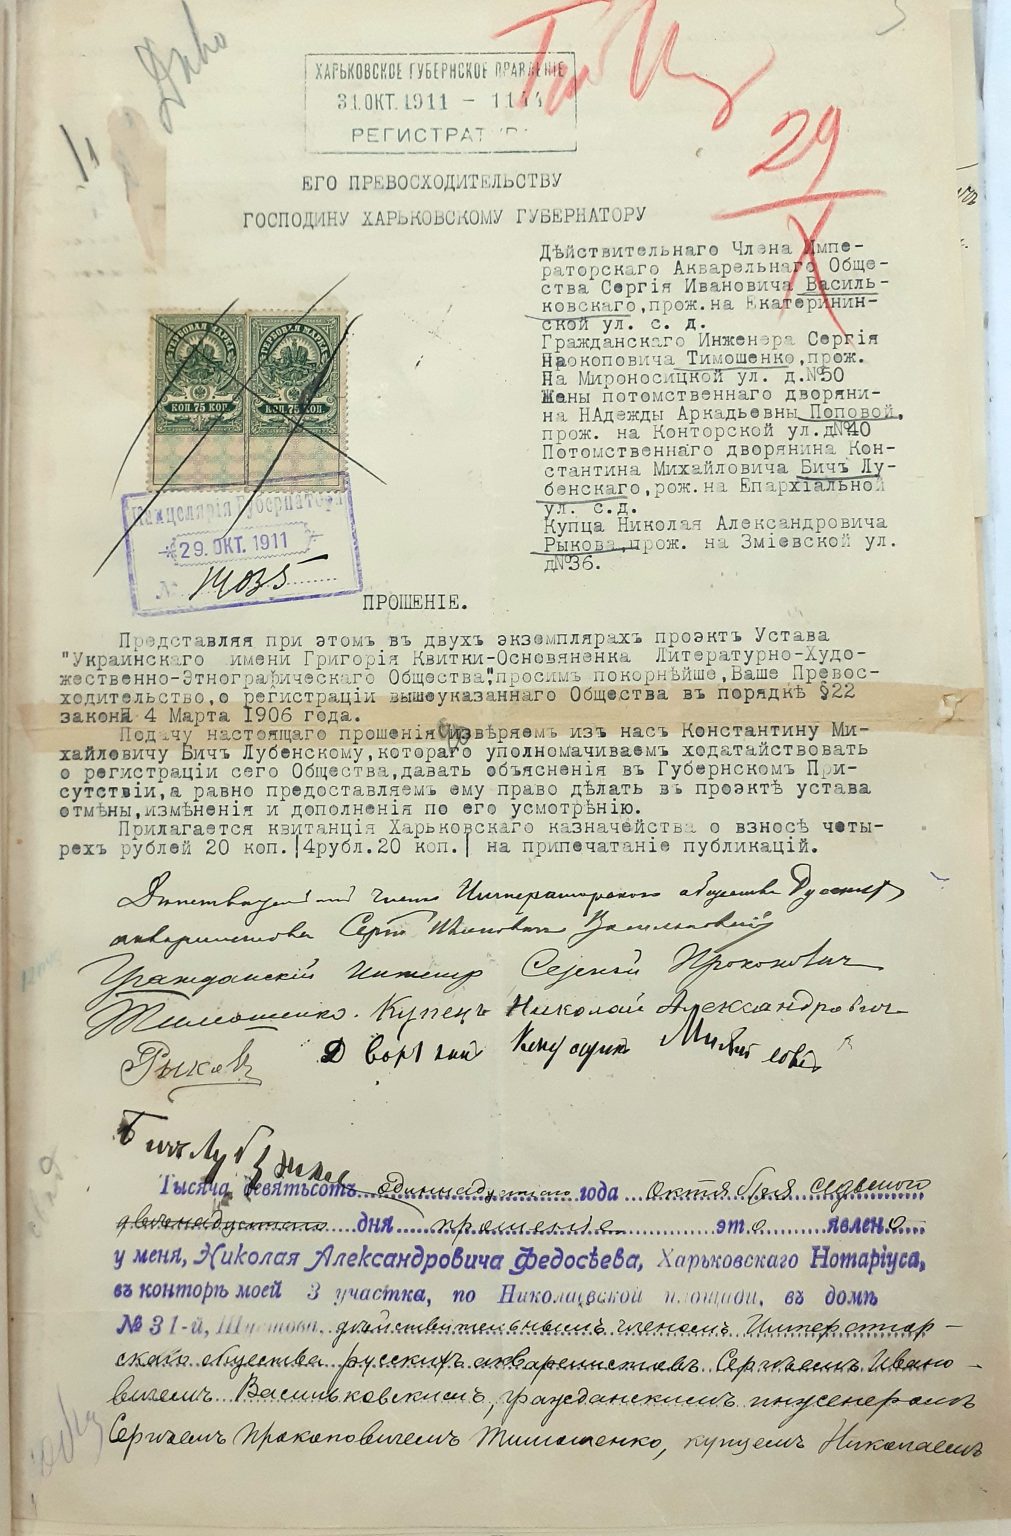 ХАРЬКОВСКОЕ ГУБЕРНСКОЕ ПРАВЛЕНІЕ
31.ОКТ.1911 - 11
РЕГИСТРАТ
29
X
ЕГО ПРЕВОСХОДИТЕЛЬСТВУ
ГОСПОДИНУ ХАРЬКОВСКОМУ ГУБЕРНАТОРУ
Дѣйствительнаго Члена Импе-
раторскаго Акварельнаго Обще-
ства Сергія Ивановича Василь-
ковскаго,прож.на Екатеринин-
ской ул. с. д.
Гражданскаго Инженера Сергія
Прокоповича Тимошенко,прож.
На Мироносицкой ул. д.№50
Жены потомственнаго дворяни-
на НАдежды Аркадьевны Поповой,
прож. на Конторской ул.д№40
Потомственнаго дворянина Кон-
стантина Михайловича Бичъ Лу-
бенскаго,рож.на Епархіальной
ул. с.д.
Купца Николая Александровича
Рыкова,прож. на Зміевской ул.
д№36.
ГЕРБОВАЯ МАРКА ГЕРБОВАЯ МАРКА
КОП. 75 КОП. КОП. 75 КОП.
Канцелярія Губернатора
29. ОКТ. 1911
№ 14035
ПРОШЕНІЕ.
Представляя при этомъ въ двухъ экземплярахъ проэктъ Устава
"Украинскаго имени Григорія Квитки-Основяненка Литературно-Худо-
жественно-Этнографическаго Общества",просимъ покорнѣйше,Ваше Превос-
ходительство,о регистраціи вышеуказаннаго Общества въ порядкѣ §22
закона 4 Марта 1906 года.
Подачу настоящаго прошенія ввѣряемъ изъ насъ Константину Ми-
хайловичу Бич Лубенскому,котораго уполномачиваемъ ходатайствовать
о регистраціи сего Общества,давать объясненія въ Губернскомъ При-
сутствіи,а равно предоставляемъ ему право дѣлать въ проэктѣ устава
отмѣны,измѣненія и дополненія по его усмотрѣнію.
Прилагается квитанція Харьковскаго казначейства о взносѣ четы-
рехъ рублей 20 коп.|4рубл.20 коп.| на припечатаніе публикацій.
членъ Императорскаго общества Русскихъ
акварелистовъ Сергѣй Ивановичъ Васильковскій
Гражданскій инженер Сергѣй Прокоповичъ
Тимошенко. Купецъ Николай Александровичъ
Рыковъ
Бичъ Лубенскій
Тысяча девятьсотъ одиннадцатаго года октября седьмого
двенадцатаго дня прошеніе это явлено
у меня, Николая Александровича Федосѣева, Харьковскаго Нотаріуса,
въ конторѣ моей 3 участка, по Николаевской площади, въ домѣ
№ 31-й, дѣйствительнымъ членомъ Император-
скаго общества русскихъ акварелистовъ Сергѣемъ Ивано-
вичемъ Васильковскимъ, гражданскимъ инженеромъ
Сергѣемъ Прокоповичемъ Тимошенко, купцемъ Николаемъ